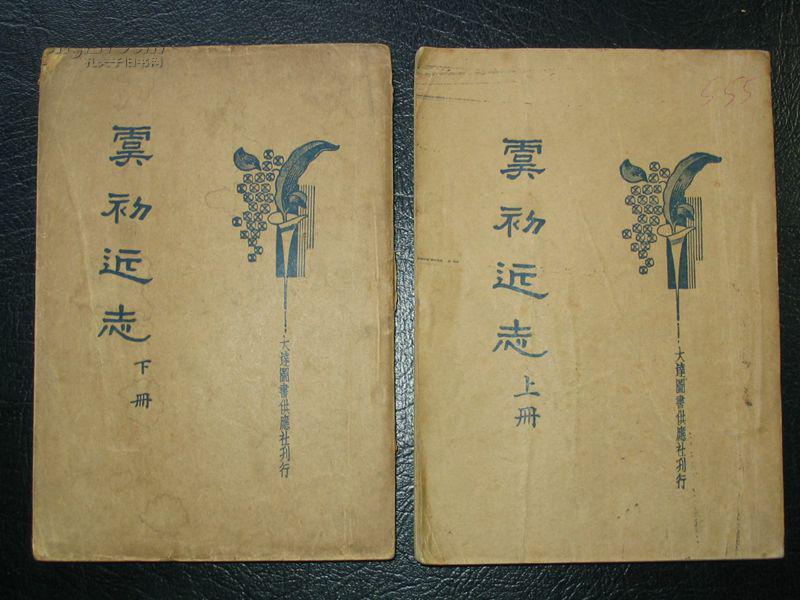 孔夫子旧书网
虞初近志
下冊
大達圖書供應社刋行
555
虞初近志
上冊
大達圖書供應社刋行